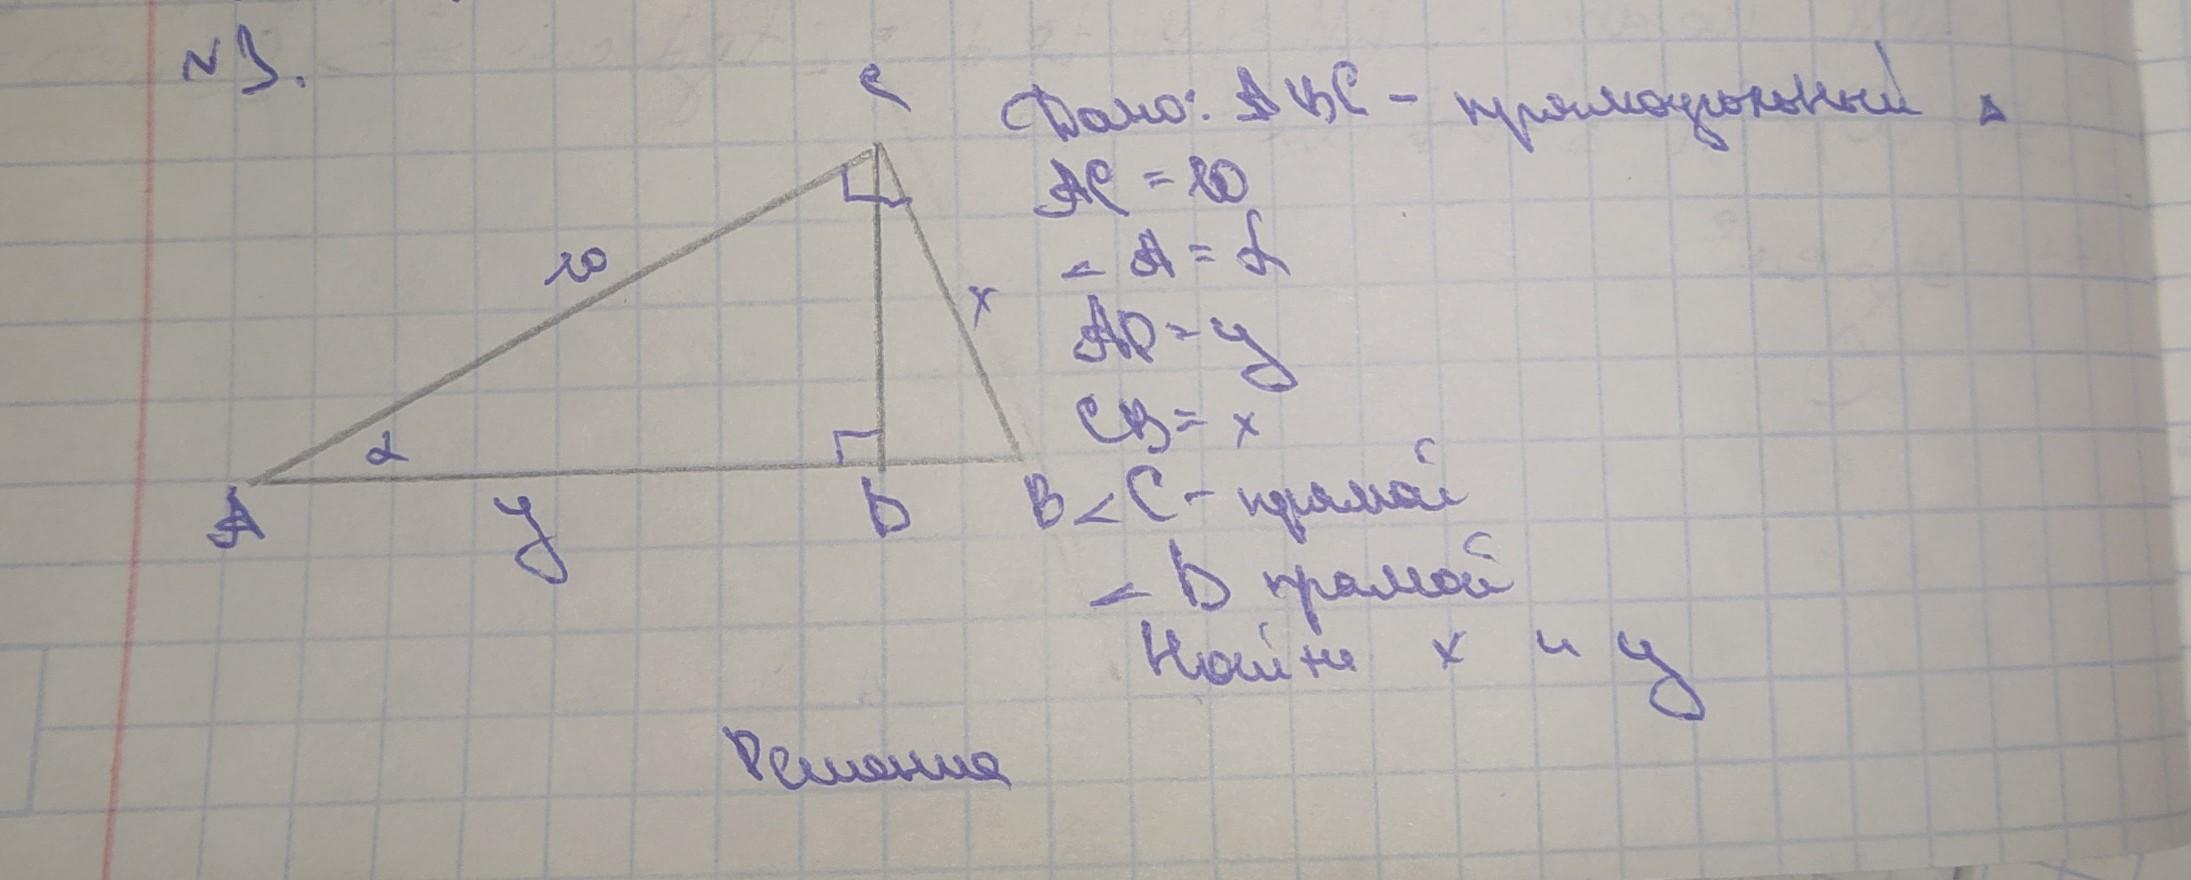 №3.
C
Дано: ABC - прямоугольный Δ
AC = 10
10
∠ A = α
x
AD = y
CB = x
α
A
y
D
B
∠ C - прямой
∠ D прямой
Найти x и y
Решение